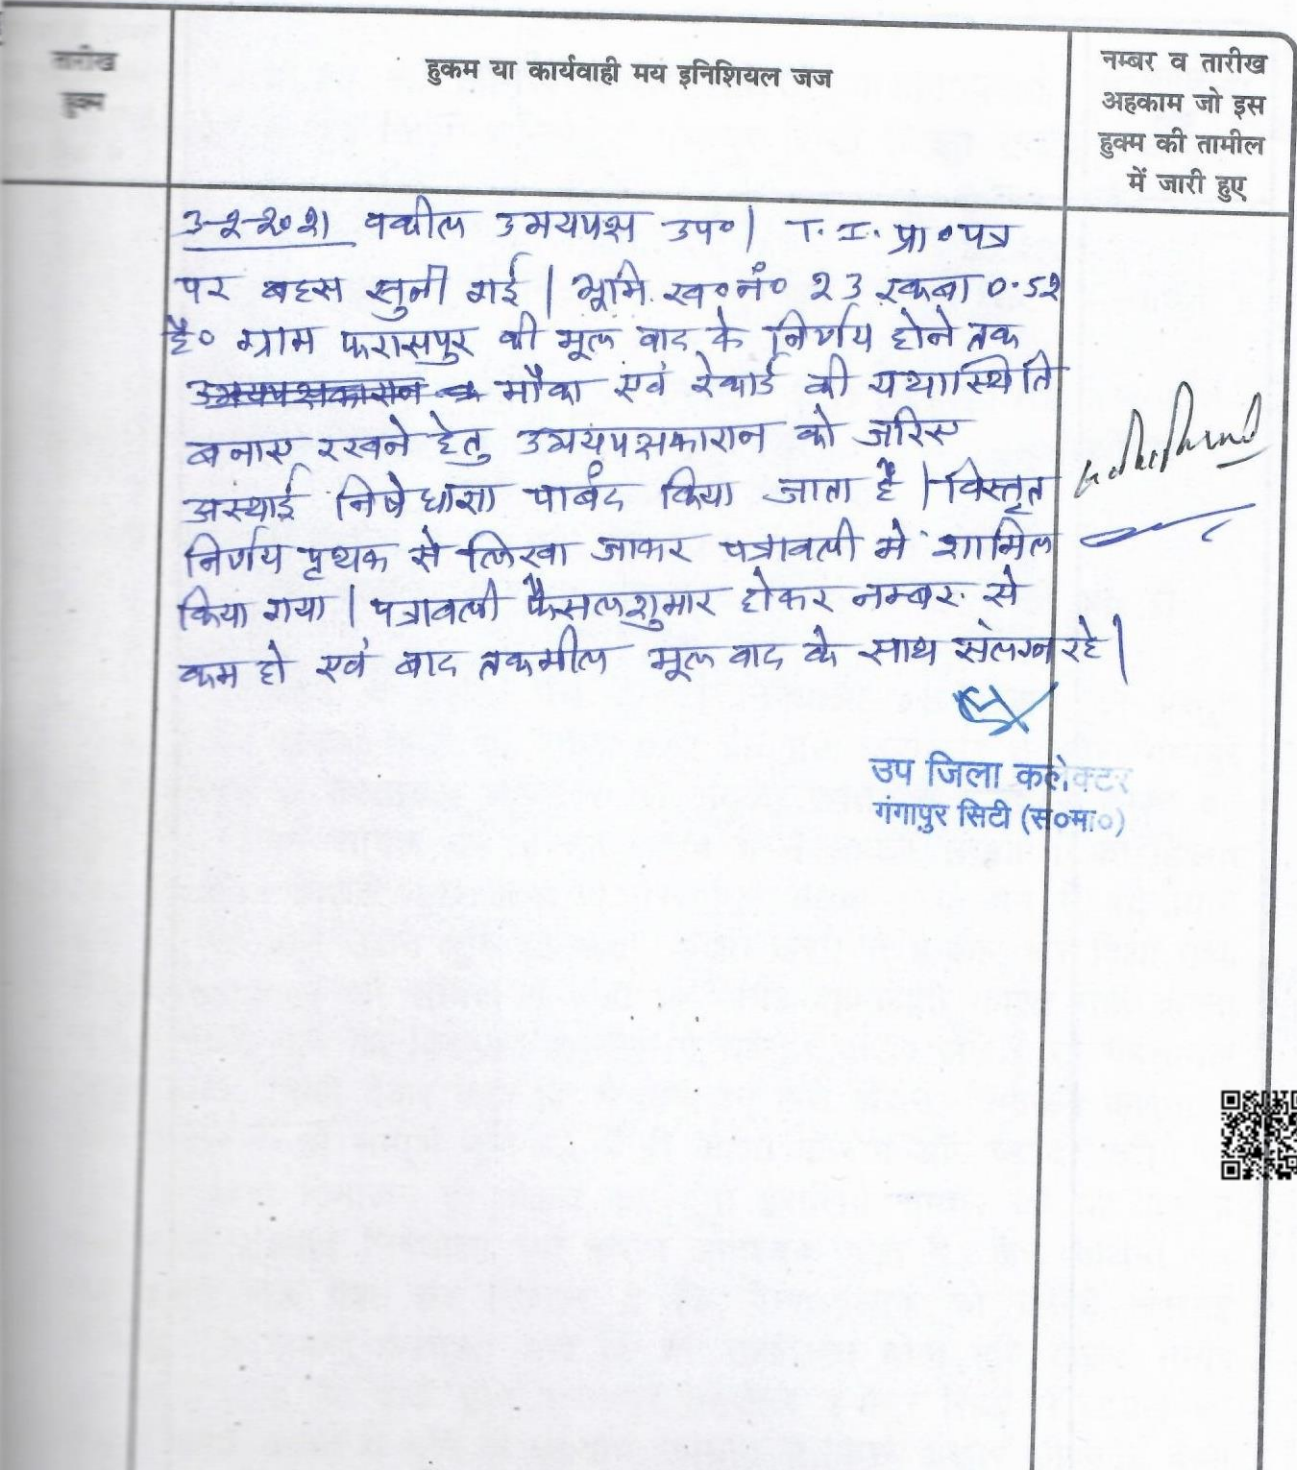 तारीख
हुक्म
हुकम या कार्यवाही मय इनिशियल जज
नम्बर व तारीख
अहकाम जो इस
हुक्म की तामील
में जारी हुए
3-2-2021 वकील उभयपक्ष उप० | T. I. प्रा०पत्र
पर बहस सुनी गई | भूमि ख०नं० 23 रकबा 0.52
है० ग्राम फरासपुर की मूल वाद के निर्णय होने तक
उभयपक्षकारान मौका एवं रेकार्ड की यथास्थिति
बनाए रखने हेतु उभयपक्षकारान को जरिए
अस्थाई निषेधाज्ञा पाबंद किया जाता है | विस्तृत
निर्णय पृथक से लिखा जाकर पत्रावली मे शामिल
किया गया | पत्रावली फैसलशुमार होकर नम्बर से
कम हो एवं बाद तकमील मूल वाद के साथ संलग्न रहे |
उप जिला कलेक्टर
गंगापुर सिटी (स०मा०)